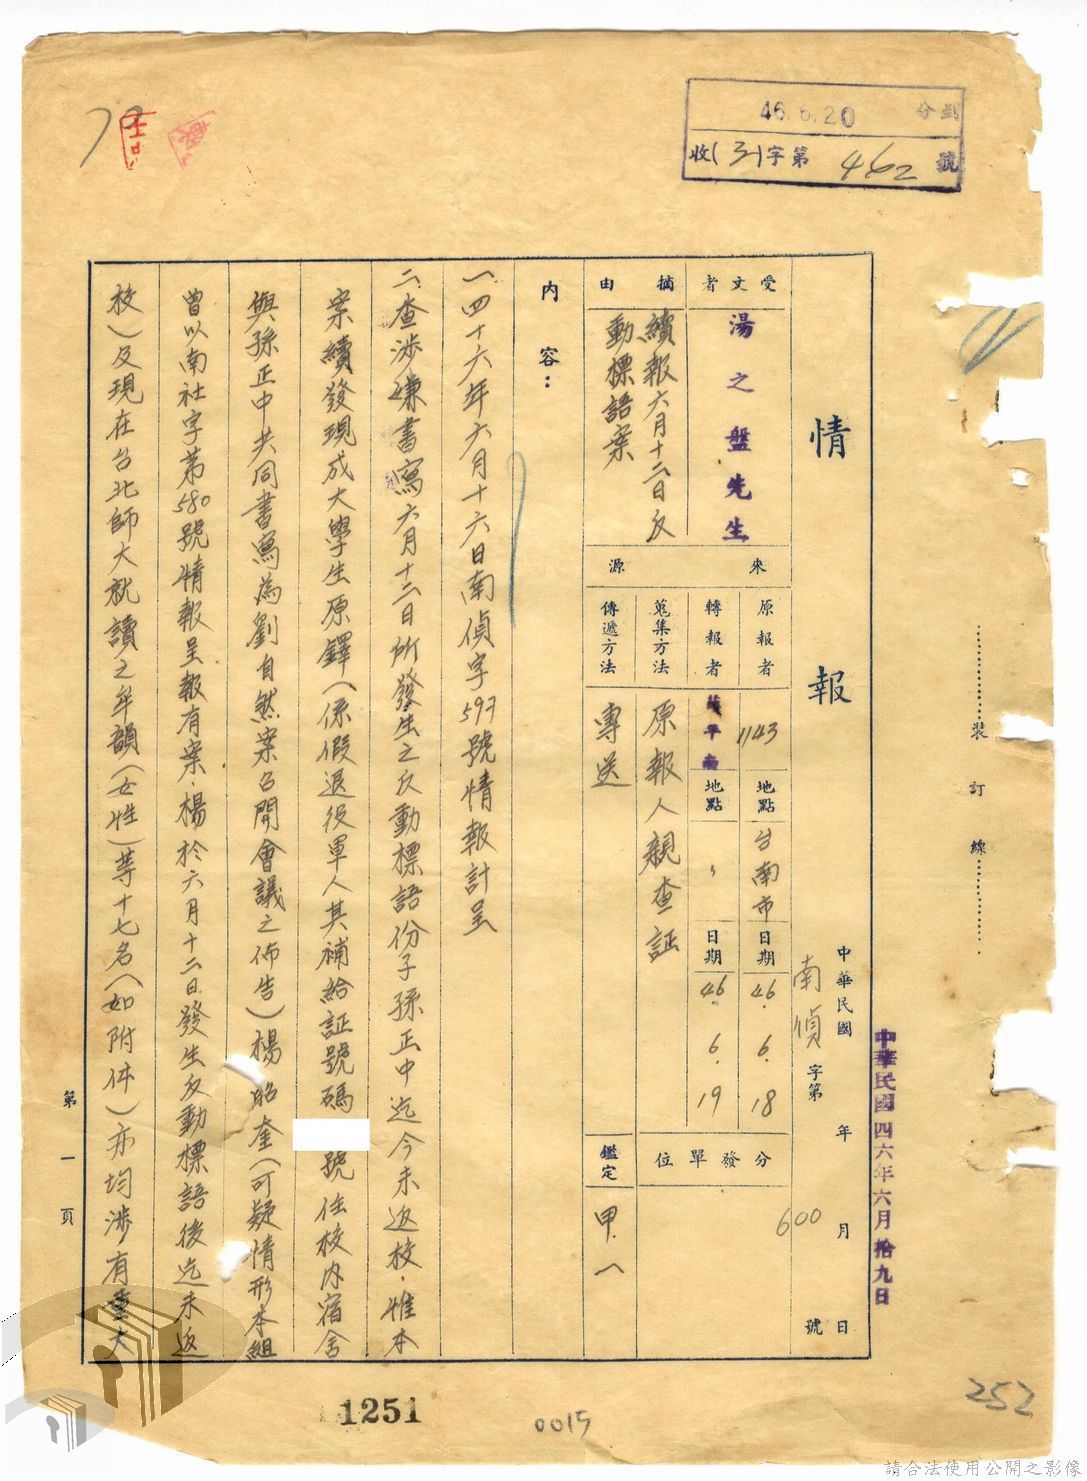 46.6.20 到分
收(3)字第462號
裝訂線
中華民國四六年六月拾九日
情報
中華民國 年 月 日
南偵字第600號
受文者 湯之盤先生
摘由 續報六月十二日反動標語案
來源
原報者 1143 地點 台南市 日期 46.6.18
轉報者 地點 〃 日期 46.6.19
蒐集方法 原報人親查証
傳遞方法 專送
分發單位
鑑定 甲.八
內容：
一、四十六年六月十六日南偵字597號情報計呈
二、查涉嫌書寫六月十二日所發生之反動標語份子孫正中迄今未返校，惟本
案續發現成大學生原鐸(係假退役軍人其補給証號碼 號住校內宿舍
與孫正中共同書寫為劉自然案召開會議之佈告)楊昭奎(可疑情形本組
曾以南社字第580號情報呈報有案，楊於六月十二日發生反動標語後迄未返
校)及現在台北師大就讀之牟韻(女性)等十七名(如附件)亦均涉有重大
第一頁
1251
0015
252
請合法使用公開之影像